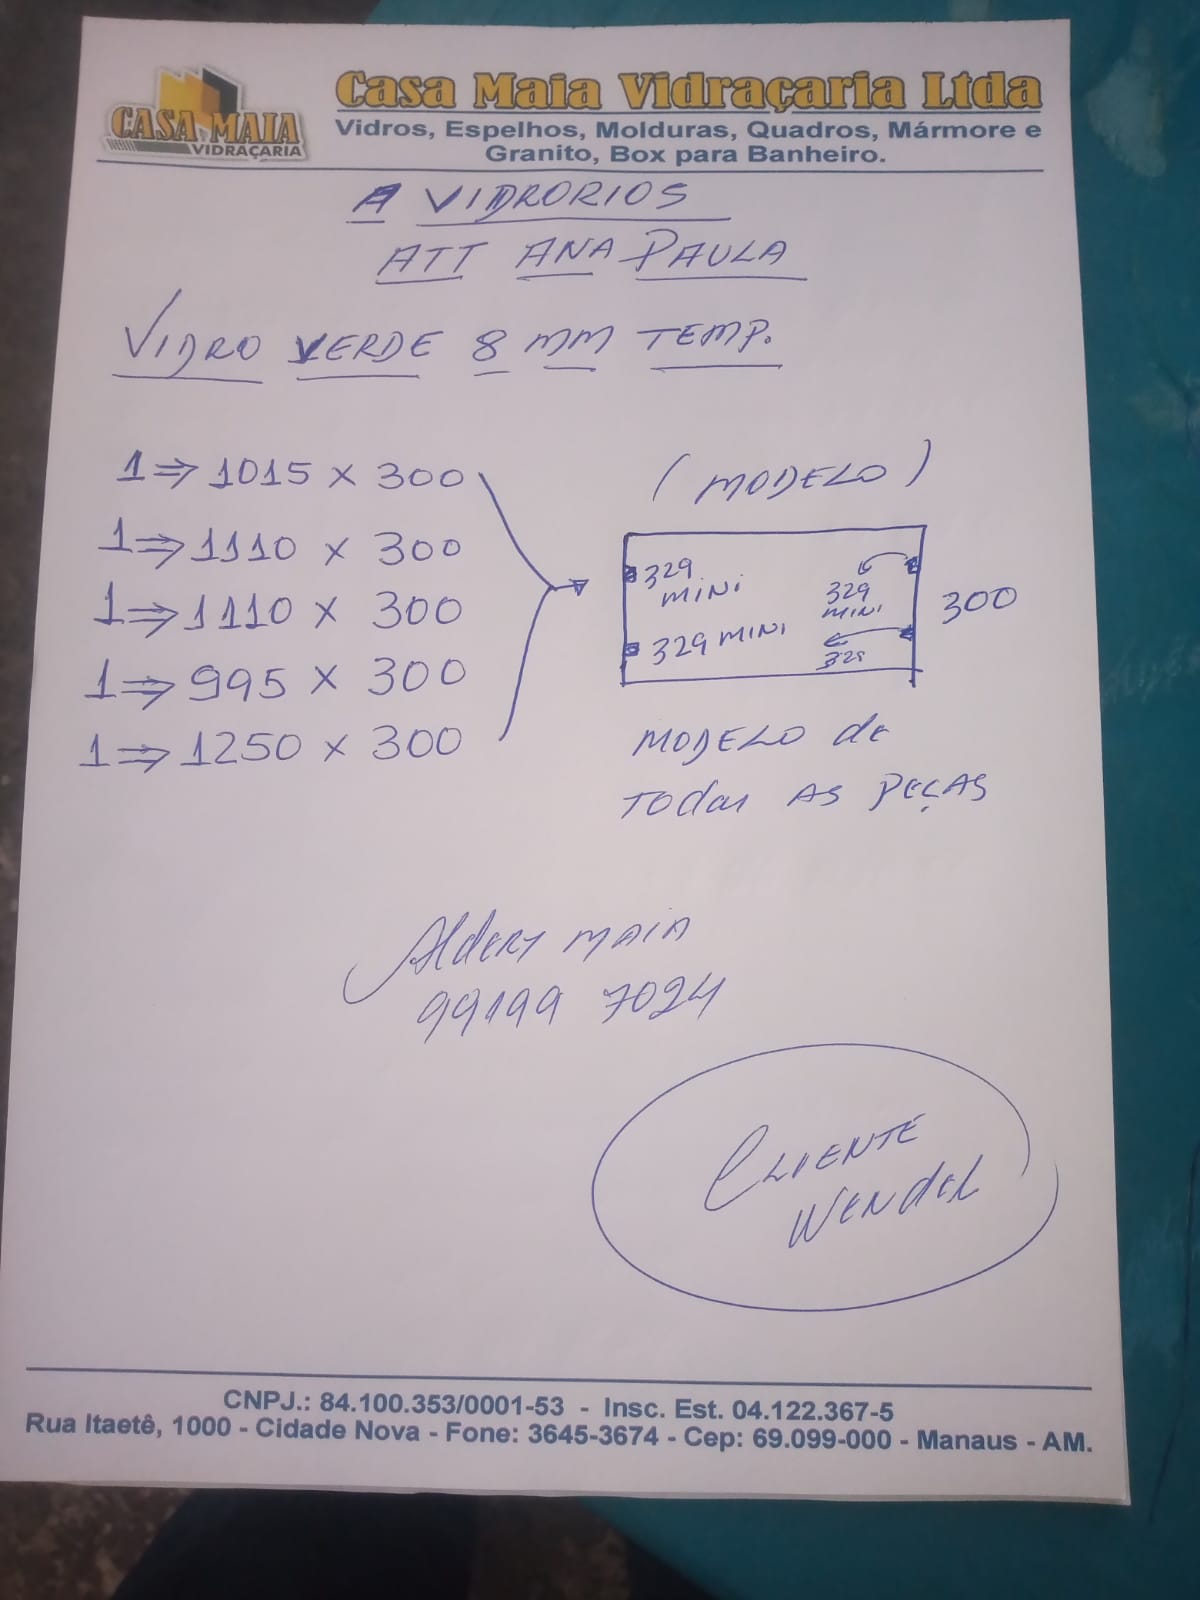 CASA MAIA
VIDRAÇARIA
Casa Maia Vidraçaria Ltda
Vidros, Espelhos, Molduras, Quadros, Mármore e
Granito, Box para Banheiro.
A VIDRORIOS
ATT ANA PAULA
VIDRO VERDE 8 MM TEMP.
1⇒1015 x 300
1⇒1110 x 300
1⇒1110 x 300
1⇒995 x 300
1⇒1250 x 300
(MODELO)
329
MINI
329
MINI
329 MINI
329
300
MODELO de
TODAS AS PEÇAS
Aldery MAIA
99199 7024
CLIENTE
WENDEL
CNPJ.: 84.100.353/0001-53 - Insc. Est. 04.122.367-5
Rua Itaetê, 1000 - Cidade Nova - Fone: 3645-3674 - Cep: 69.099-000 - Manaus - AM.